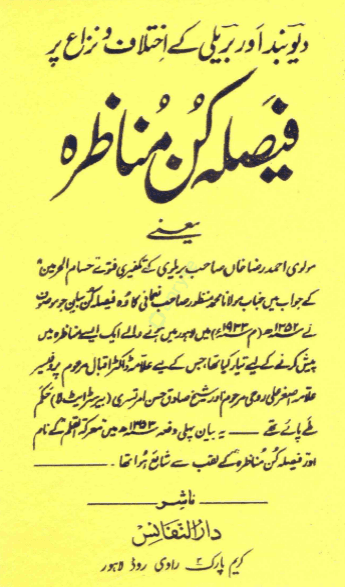 دیوبند اور بریلی کے اختلاف و نزاع پر
فیصلہ کُن مُناظرہ
یعنے
مولوی احمد رضا خاں صاحب بریلوی کے تکفیری فتوے حسام الحرمین
کے جواب میں جناب مولانا محمد منظور صاحب نعمانی کا وہ فیصلہ کن بیان جو موصوف
نے ۱۳۵۲ھ (م ۱۹۳۳ء) میں لاہور میں ہونے والے ایک ایسے مناظرہ میں
پیش کرنے کے لیے تیار کیا تھا، جس کے لیے علامہ ڈاکٹر اقبال مرحوم پروفیسر
علامہ اصغر علی روحی مرحوم اور شیخ صادق حسن امرتسری (بیرسٹرایٹ لا) حَکَم
طے پائے تھے — یہ بیان پہلی دفعہ ۱۳۵۳ھ میں معرکۃ القلم کے نام
اور فیصلہ کُن مُناظرہ کے لقب سے شائع ہوا تھا۔
ناشر
دارُ النّفائس
کریم پارک ۲ راوی روڈ لاہور